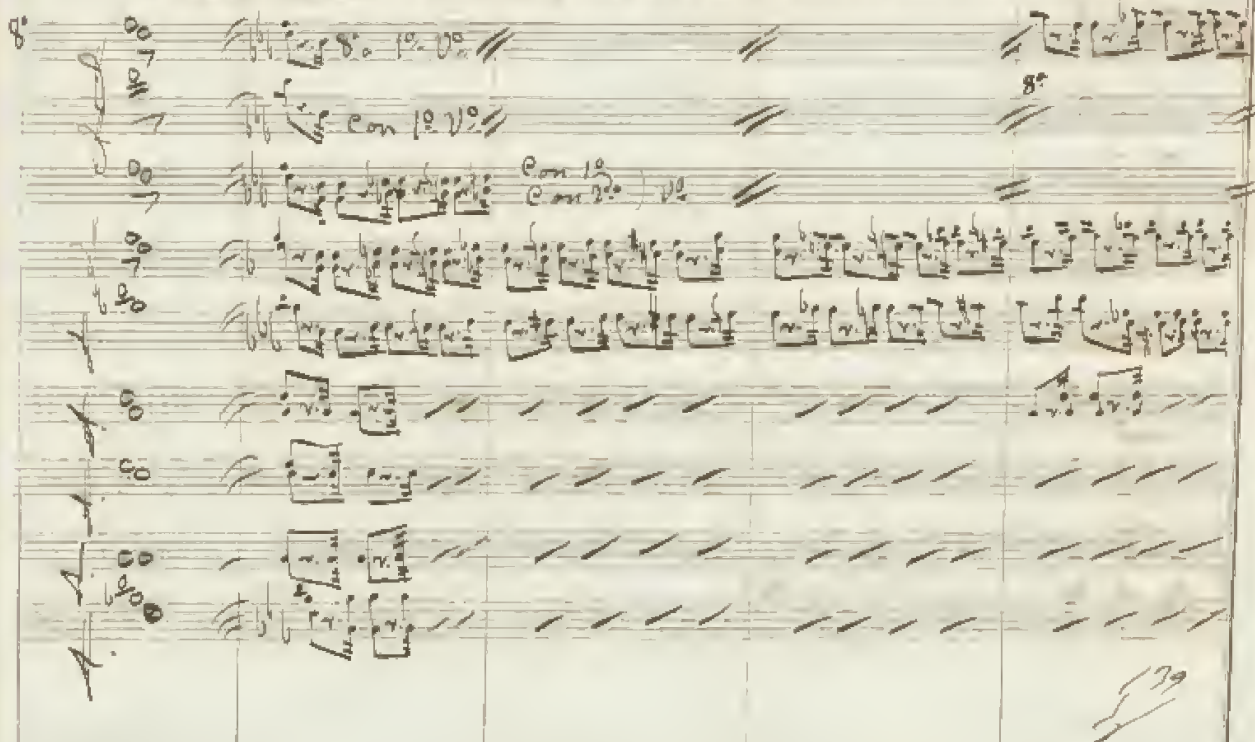 8ª
8ª 1º Vº
8ª
Con 1º Vº
Con 1º
Con 2º ) Vº
f
f
f
f
f
f
39